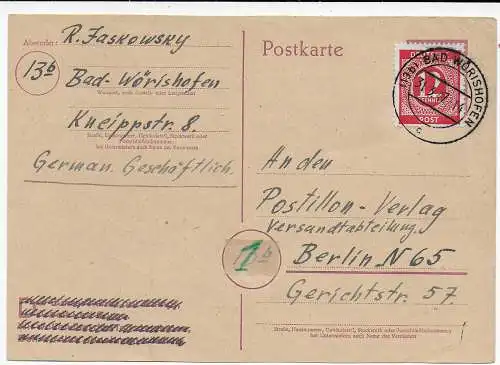 Absender: R. Jaskowsky
13b
Bad-Wörishofen
Wohnort, auch Zustell- oder Leitpostamt
Kneippstr. 8.
Straße, Hausnummer, Gebäudeteil, Stockwerk oder
Postschließfachnummer;
bei Untermietern auch Name des Vermieters
German. Geschäftlich.
Postkarte
DEUTSCHE
12
PFENNIG
POST
(13b) BAD WÖRISHOFEN
c
An den
Postillon-Verlag
Versandtabteilung.
Berlin N 65
Gerichtstr. 57.
Straße, Hausnummer, Gebäudeteil, Stockwerk oder Postschließfachnummer;
bei Untermietern auch Name des Vermieters